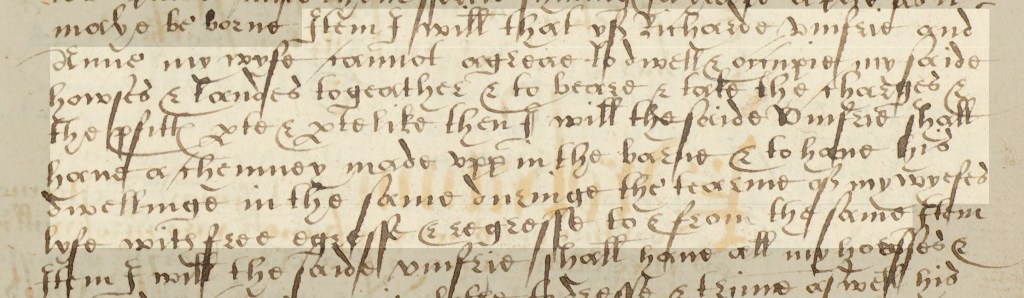 maye be borne Item I will that yf Richarde Vmfrie and
Anne my wyfe cannot agreae to dwell & occupie my saide
howses & landes togeather & to beare & take the charges &
the pfitt pte & ptelike then I will the saide Vmfrie shall
haue a chemney made vpp in the barne & to haue his
dwellinge in the same duringe the tearme of my wyefes
lyfe with free egresse & regresse to & from the same Item
Item I will the saide vmfrie shall haue all my hoesses &